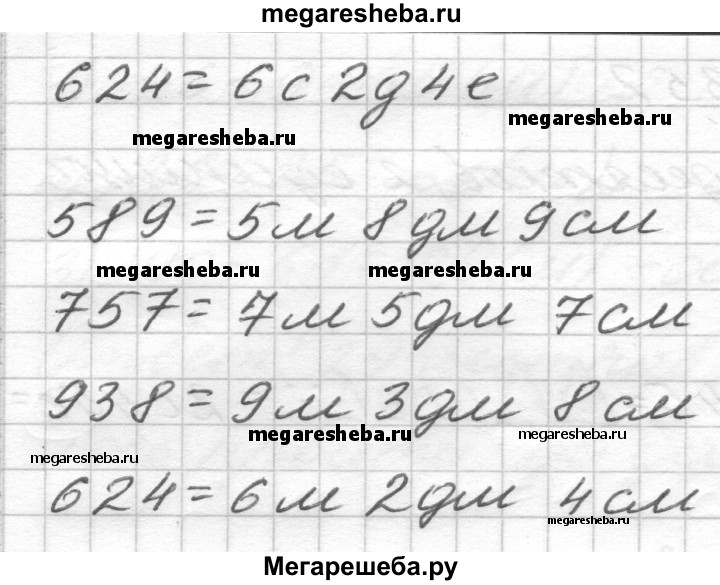 megaresheba.ru
624 = 6 с 2 д 4 е
megaresheba.ru
megaresheba.ru
589 = 5 м 8 дм 9 см
megaresheba.ru
megaresheba.ru
757 = 7 м 5 дм 7 см
938 = 9 м 3 дм 8 см
megaresheba.ru
megaresheba.ru
megaresheba.ru
624 = 6 м 2 дм 4 см
megaresheba.ru
Мегарешеба.ру